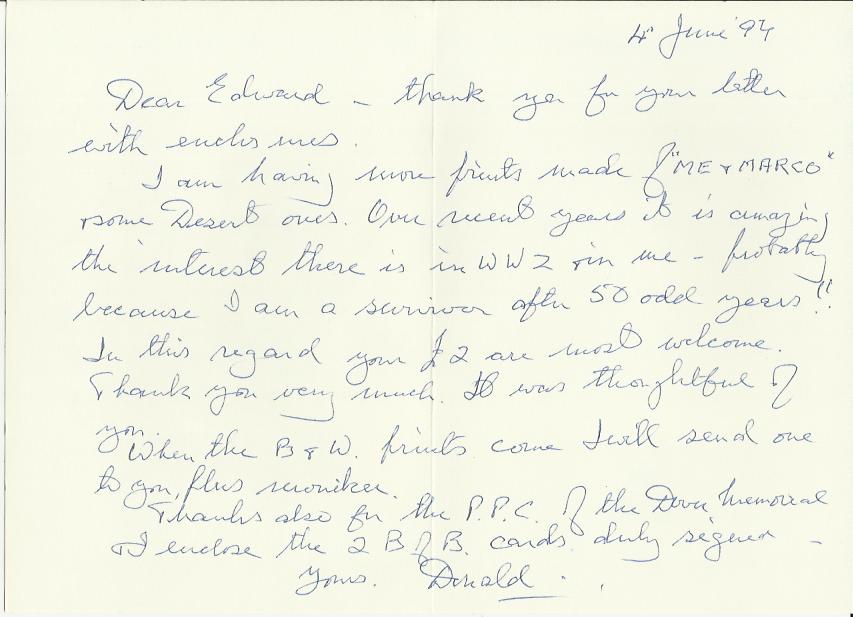 4th June '94
Dear Edward – thank you for your letter
with enclosures.
I am having more prints made of "ME & MARCO"
& some Desert ones. Over recent years it is amazing
the interest there is in WW2 & in me – probably
because I am a survivor after 50 odd years!!
In this regard your £2 are most welcome.
Thank you very much. It was thoughtful of
you.
When the B & W. prints come I will send one
to you, plus moniker.
Thanks also for the P.P.C. of the Dover Memorial
& I enclose the 2 B of B. cards duly signed –
Yours. Donald.